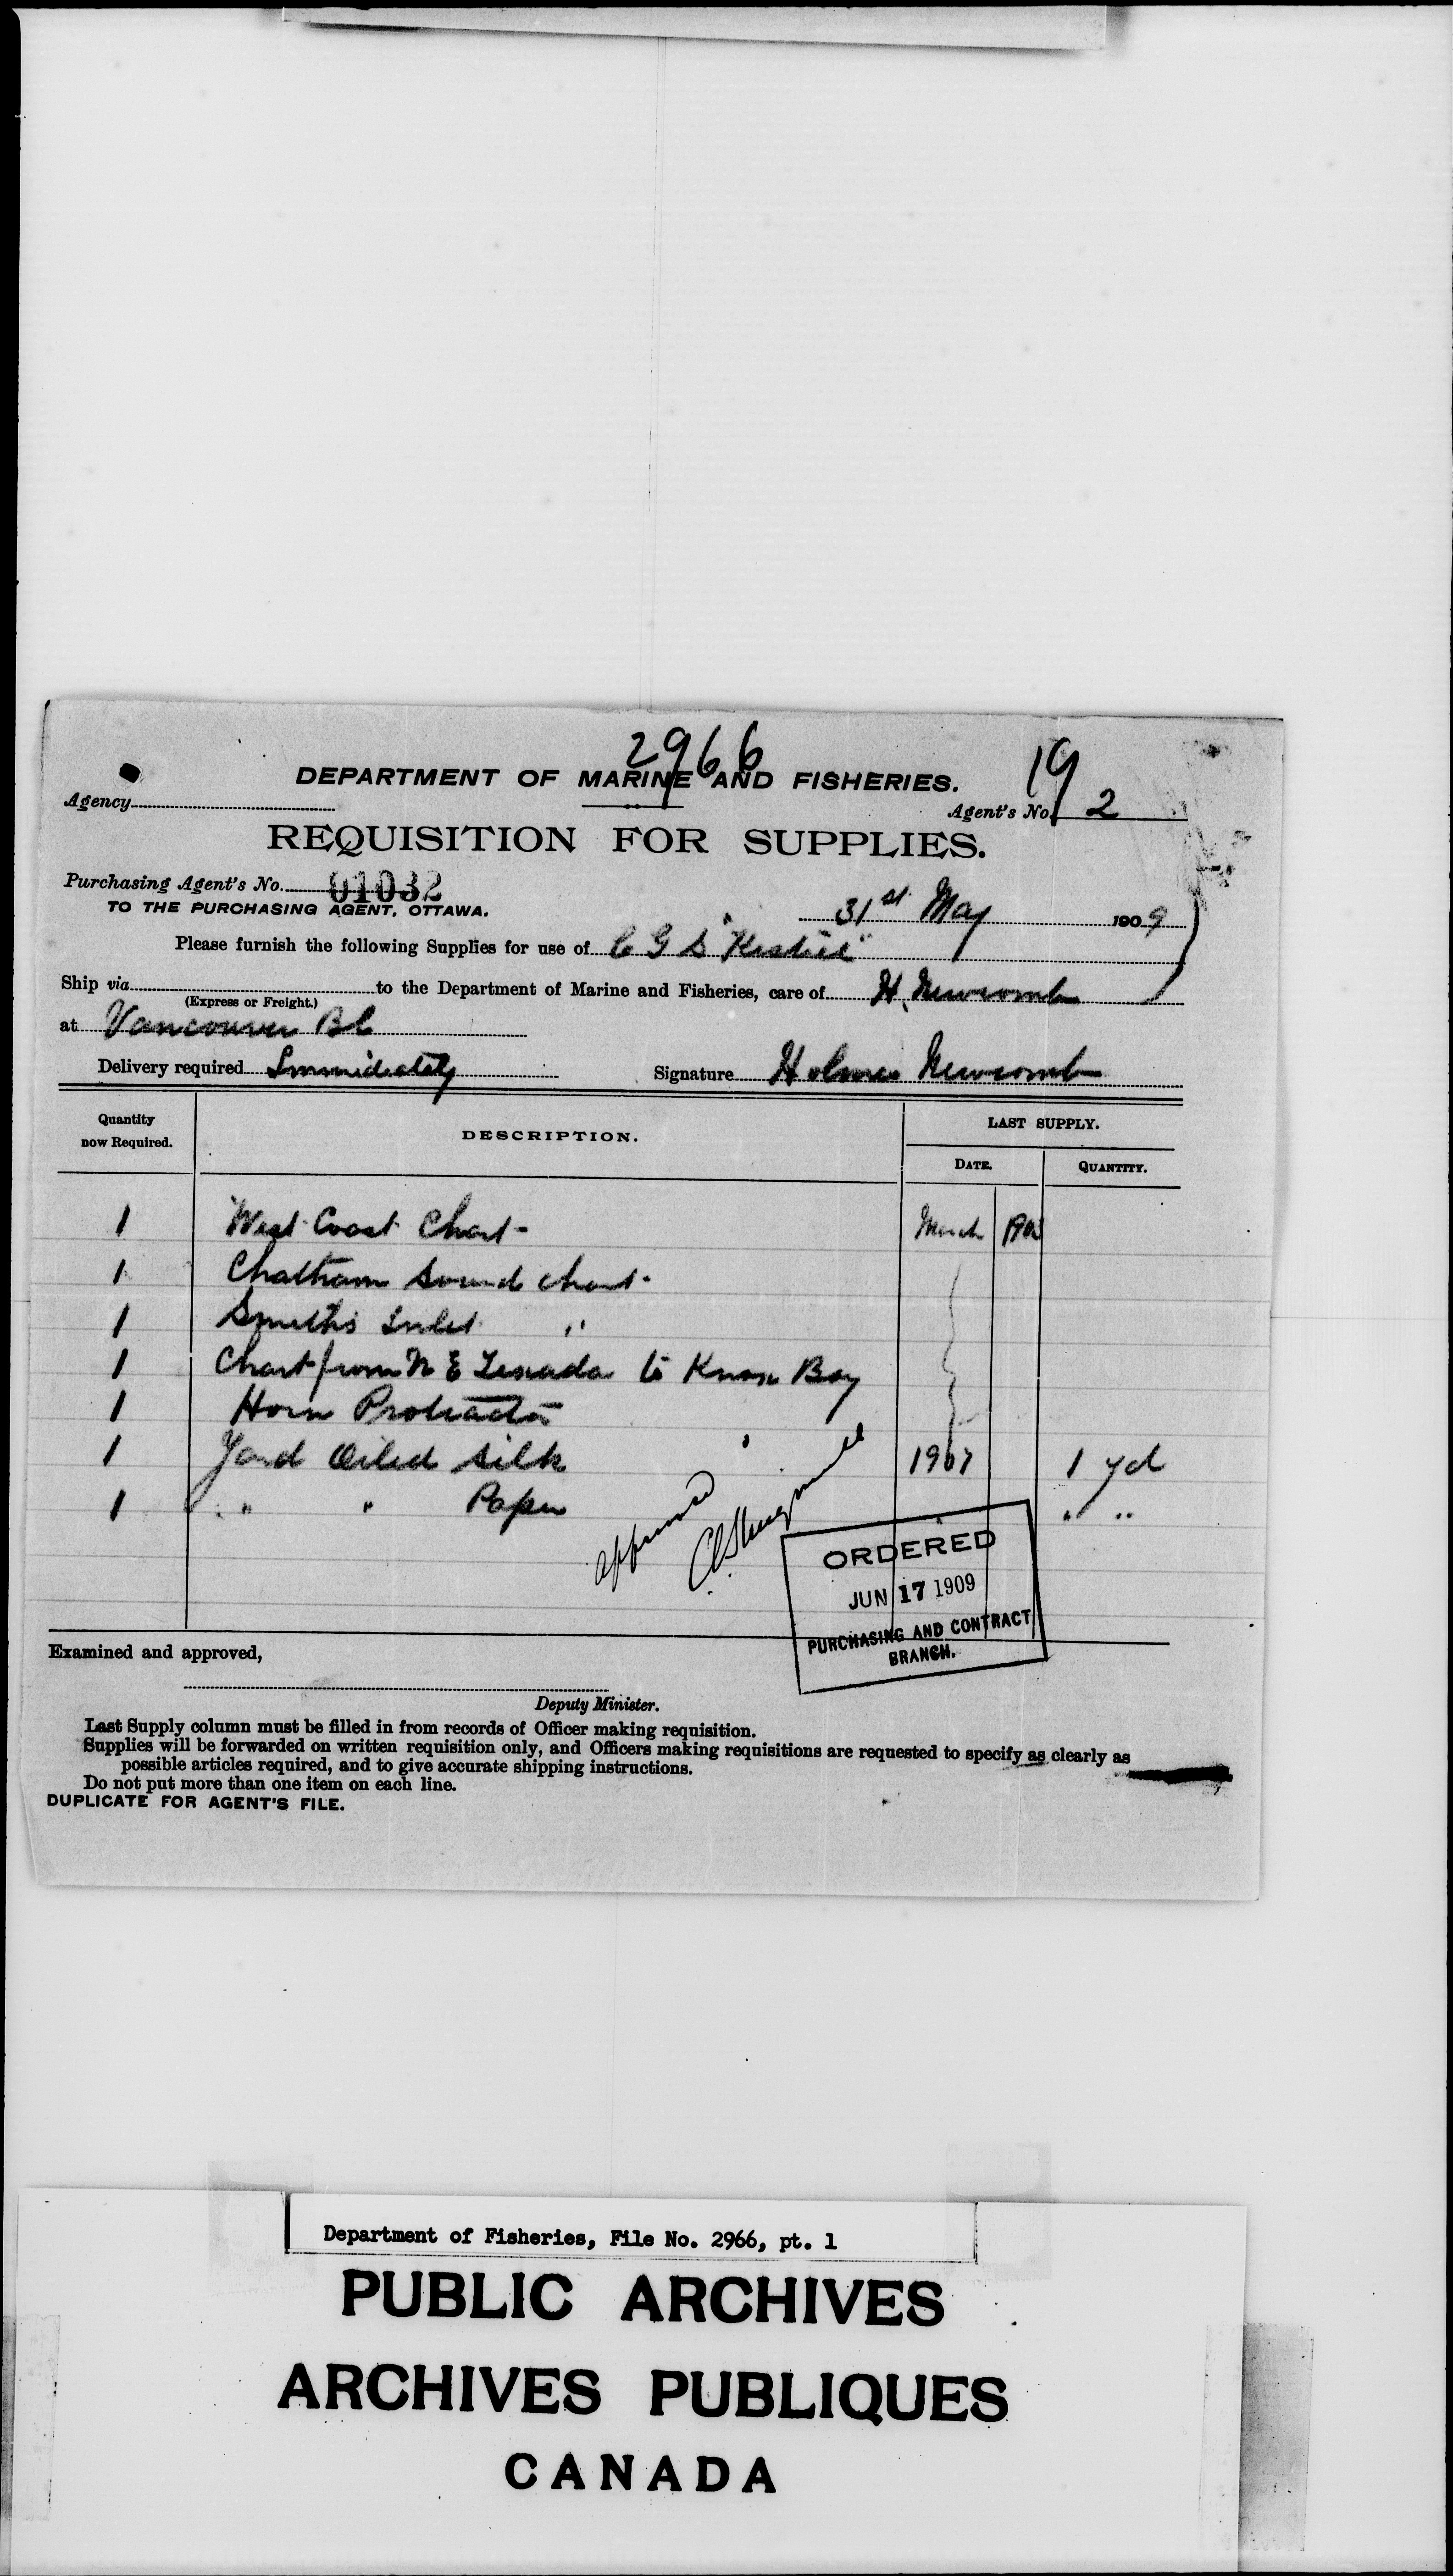 2966
DEPARTMENT OF MARINE AND FISHERIES.
19
Agency
Agent's No. 2
REQUISITION FOR SUPPLIES.
Purchasing Agent's No. 01032
TO THE PURCHASING AGENT, OTTAWA.
31st May 1909
Please furnish the following Supplies for use of C G S "Kestrel"
Ship via to the Department of Marine and Fisheries, care of H. Newcomb
(Express or Freight.)
at Vancouver B C
Delivery required Immediately Signature Holmes Newcomb
Quantity now Required. DESCRIPTION. LAST SUPPLY.
DATE. QUANTITY.
1 West Coast Chart March
1 Chatham Sound chart
1 Smith's Inlet "
1 Chart from N E to Knox Bay
1 Horn Protractor
1 Yard Oiled Silk 1907 1 yd
1 " " Paper " "
approved
ORDERED
JUN 17 1909
PURCHASING AND CONTRACT
BRANCH.
Examined and approved,
Deputy Minister.
Last Supply column must be filled in from records of Officer making requisition.
Supplies will be forwarded on written requisition only, and Officers making requisitions are requested to specify as clearly as
possible articles required, and to give accurate shipping instructions.
Do not put more than one item on each line.
DUPLICATE FOR AGENT'S FILE.
Department of Fisheries, File No. 2966, pt. 1
PUBLIC ARCHIVES
ARCHIVES PUBLIQUES
CANADA